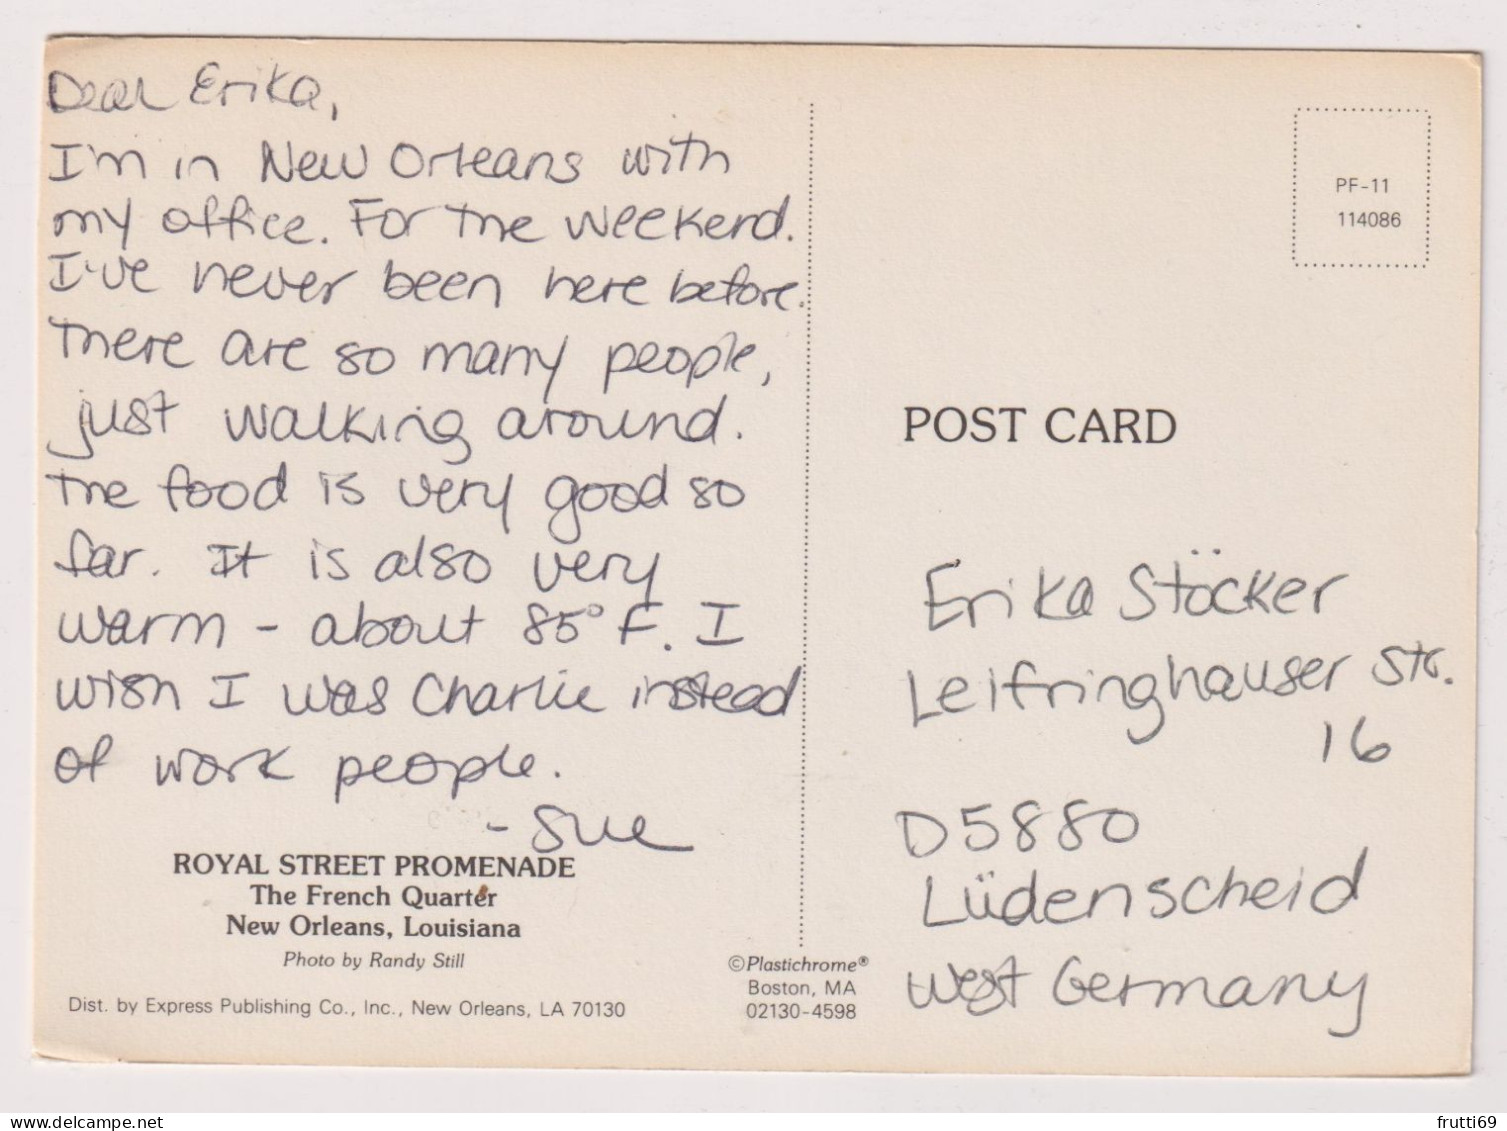 Dear Erika,
I'm in New Orleans with
my office. For the weekend.
I've never been here before.
There are so many people,
just walking around.
The food is very good so
far. It is also very
warm - about 85° F. I
wish I was Charlie instead
of work people.
- Sue
ROYAL STREET PROMENADE
The French Quarter
New Orleans, Louisiana
Photo by Randy Still
Dist. by Express Publishing Co., Inc., New Orleans, LA 70130
©Plastichrome®
Boston, MA
02130-4598
PF-11
114086
POST CARD
Erika Stöcker
Leifringhauser Str.
16
D5880
Lüdenscheid
West Germany
delcampe.net
frutti69